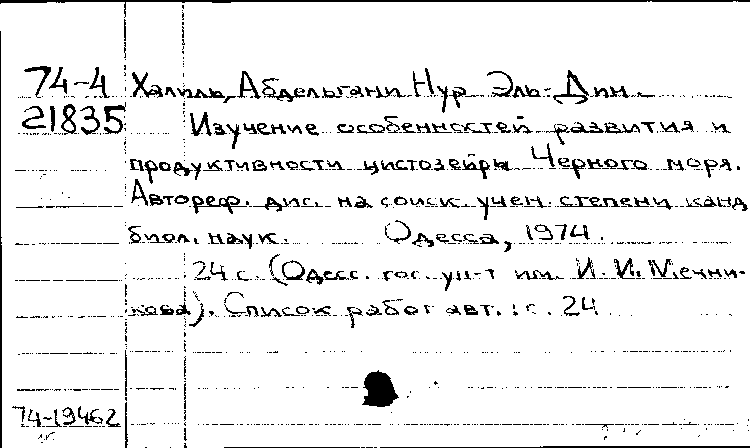 74-4 Халиль, Абдельгани Нур Эль-Дин.
21835 Изучение особенностей развития и
продуктивности цистозейры Черного моря.
Автореф. дис. на соиск. учен. степени канд
биол. наук. Одесса, 1974.
24 с. (Одесс. гос. ун-т им. И. И. Мечни-
кова). Список работ авт.: с. 24
74-19462